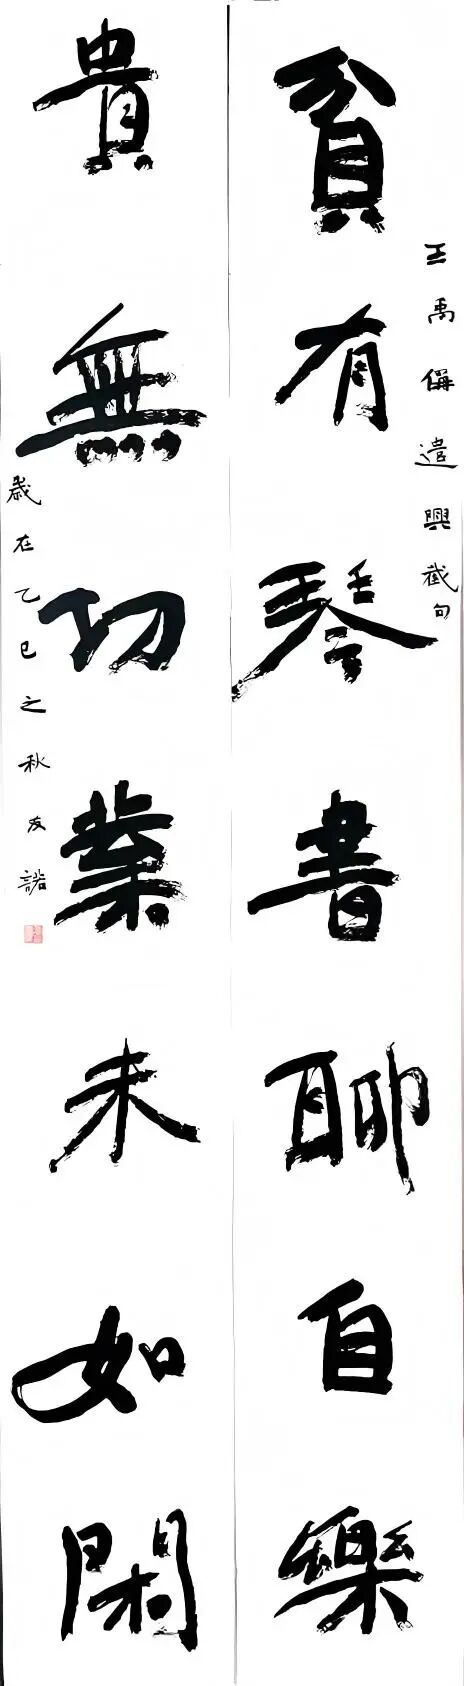 王禹偁遣興截句
貧有琴書聊自樂
貴無功業未如閑
歲在乙巳之秋友諾